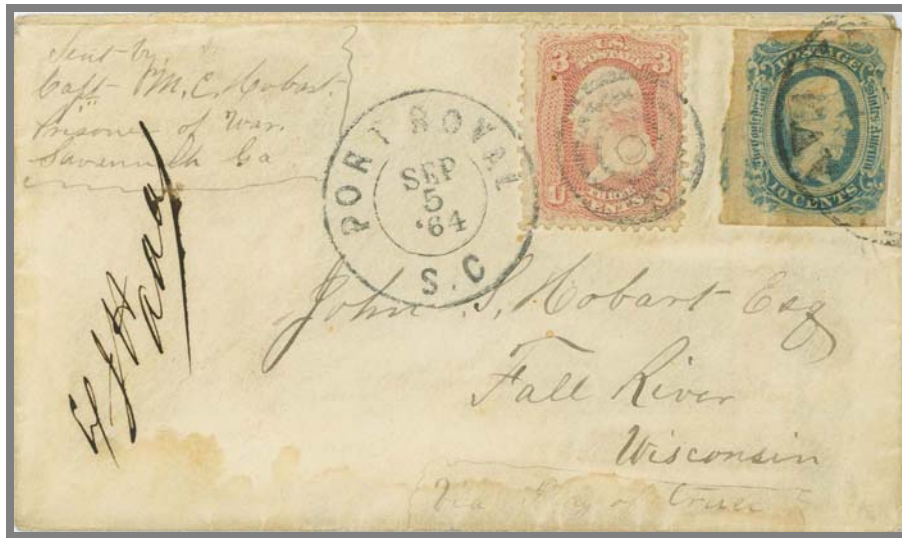 Sent by
Capt M. C. Hobart.
Prisoner of War.
Savannah Ga
PORT ROYAL
SEP
5
'64
S.C
3 U.S. POSTAGE 3
U THREE CENTS S
POSTAGE
The Confederate States of America
10 CENTS
John S. Hobart Esq
Fall River
Wisconsin
Via Flag of Truce